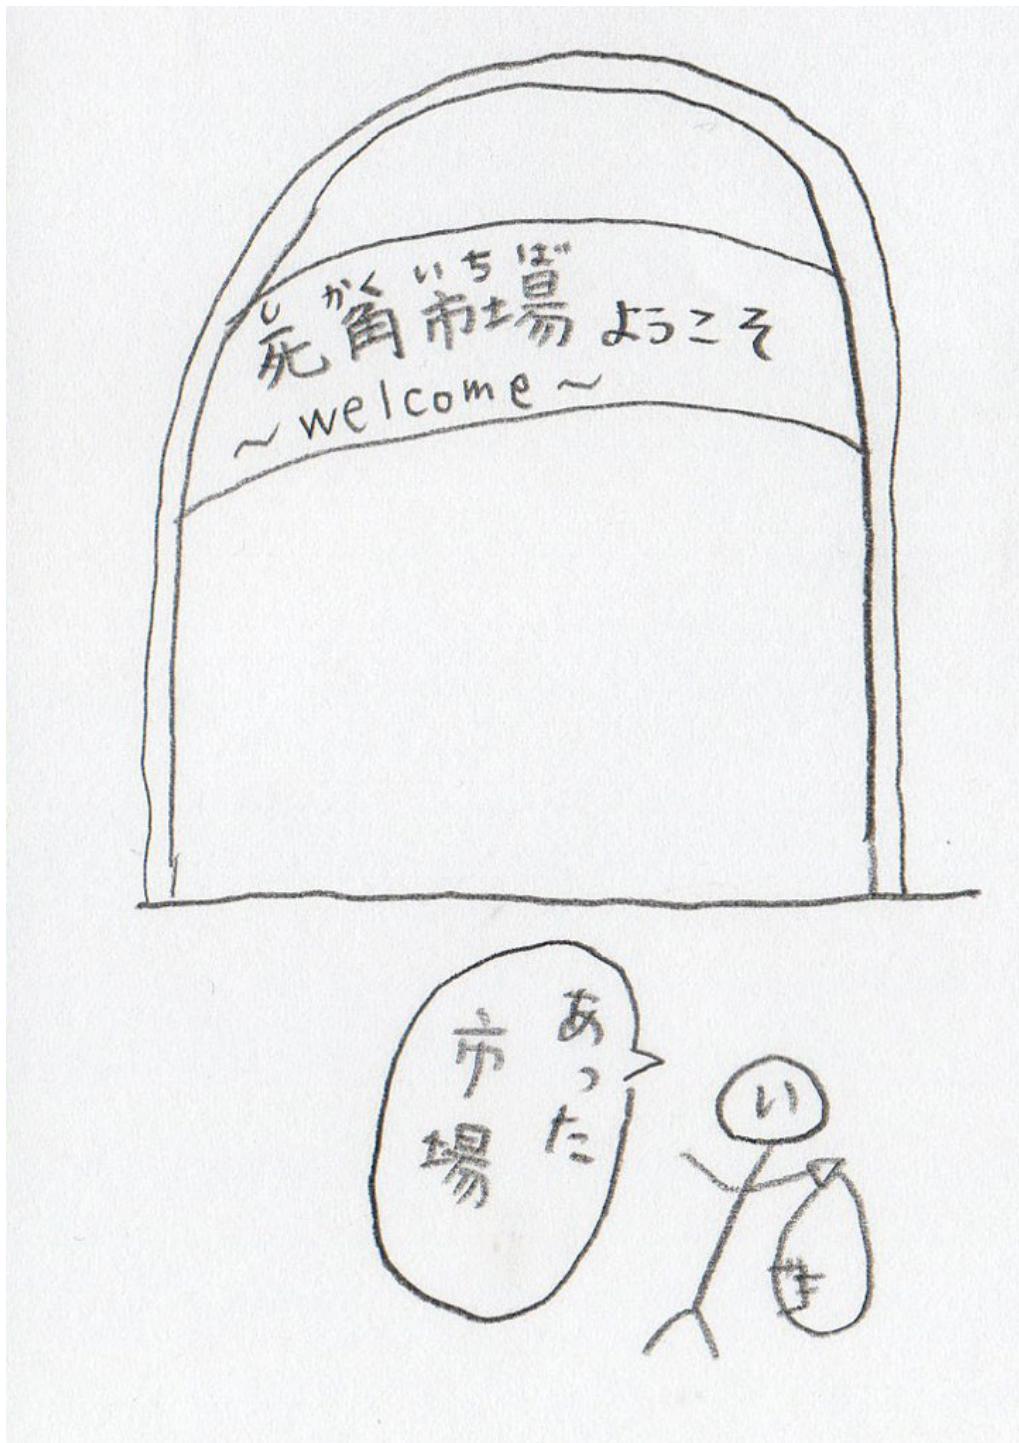 しかくいちば
死角市場ようこそ
～welcome～
あった
市場
い